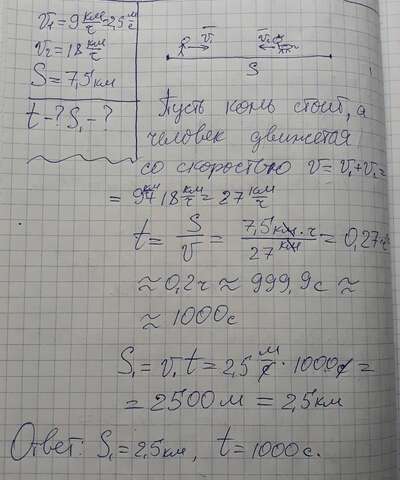 v₁ = 9 км/ч = 2,5 м/с
v₂ = 18 км/ч
S = 7,5 км
t - ? S₁ - ?
v₁ v₂
S
Пусть конь стоит, а
человек движется
со скоростью v = v₁ + v₂ =
= 9 км/ч 18 км/ч = 27 км/ч
t = S/v = 7,5 км · ч / 27 км = 0,27ч
≈ 0,2ч ≈ 999,9с ≈
≈ 1000с
S₁ = v₁t = 2,5 м/с · 1000с =
= 2500м = 2,5км
Ответ: S₁ = 2,5 км, t = 1000с.